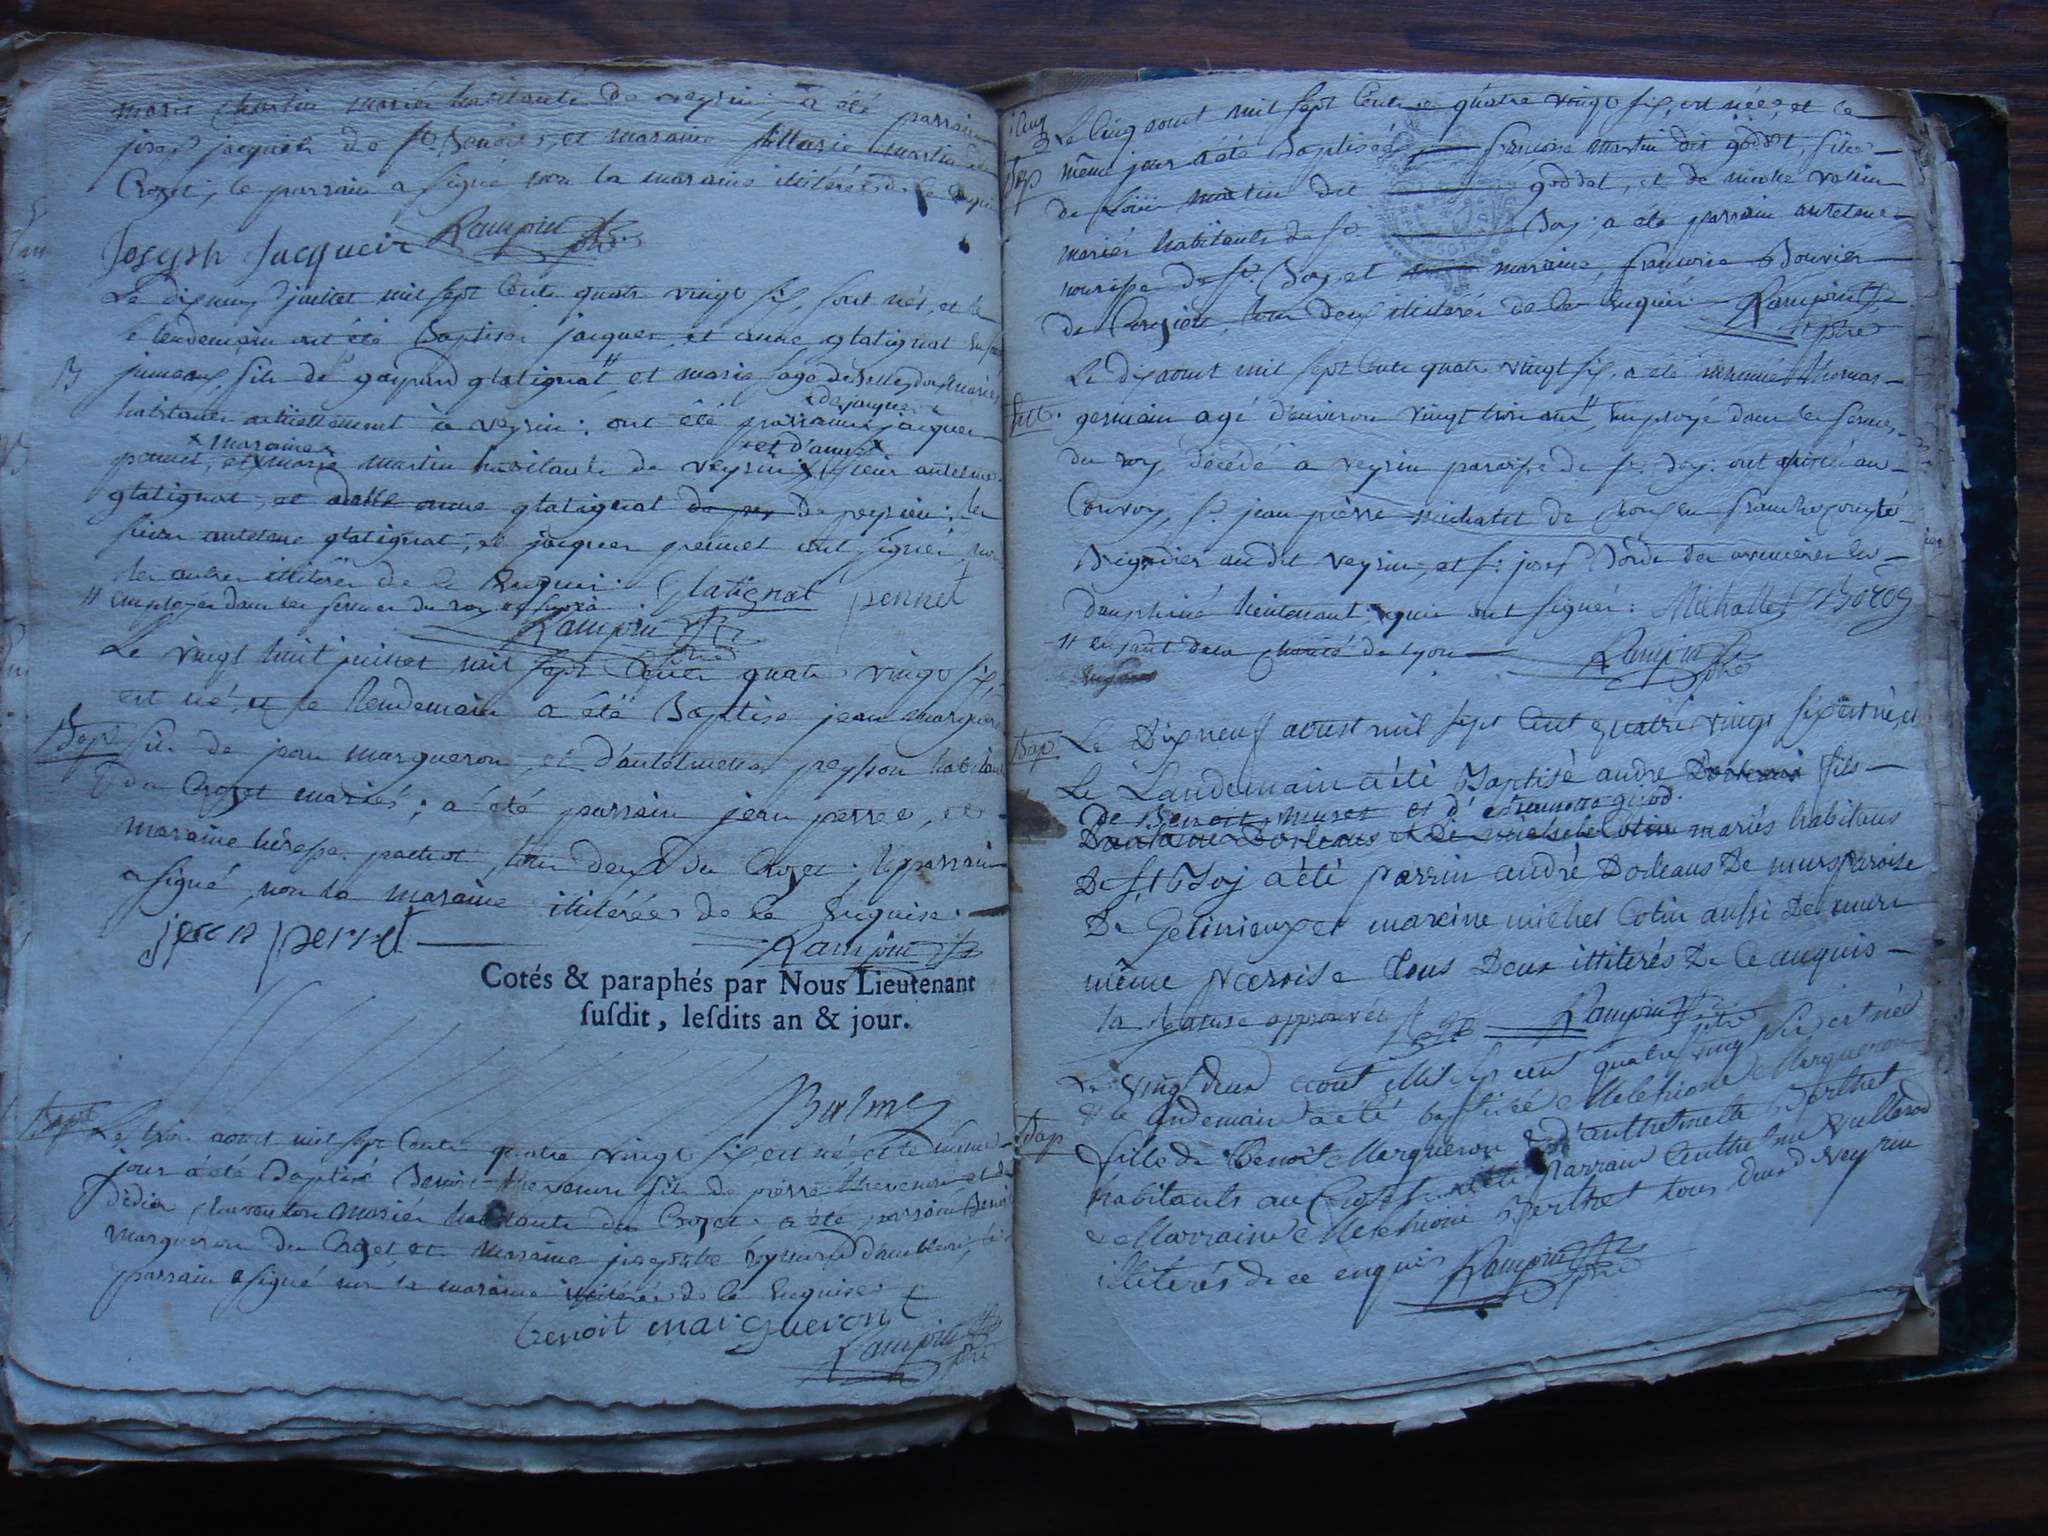 marie martin mariés habitants de veyrin; a été parrain
josep jacquier de st Benoit, et maraine Marie martin
Crozet; le parrain a signé non la maraine illiterée de ce enquise
Joseph Jacqueir Rampin ptre
Le dixneuf juillet mil sept cents quatre vingt six, sont nés, et le
lendemain ont été Baptisés jacques et anne glatignat enfans
B
jumeaux, fils de gaspard glatignat, et marie mariés
habitants actuellement à veyrin: ont été parrains jacques
de jacques
pennet, et marie martin habitants de veyrin sieur antelme
maraine et d'anne
glatignat, et anne glatignat de peyrieu; les
sieur antelme glatignat, et jacques pennet ont signés non
les autres illiterés de ce Enquis: Glatignat pennet
employés dans les fermes du roy
Rampin ptre
Le vingt huit juillet mil sept cents quatre vingt six
est né, et le lendemain a été Baptisé jean margueron
Bap fils de jean margueron, et d'antelmette peysson habitants
du Crozet mariés; a été parrain jean perret, et
maraine therese pochot, tous deux du Crozet: le parrain
a signé, non la maraine illiterée de ce Enquise.
jean perret Rampin ptre
Cotés & paraphés par Nous Lieutenant
susdit, lesdits an & jour.
Balme
Bap Le trois aoust mil sept Cents quatre vingt six, est né et le même
jour a été Baptisé Benoit thevenon fils de pierre thevenon et de
mariés habitants du Crozet: a été parrain Benoit
margueron du Crozet, et maraine josephte reymond
parrain a signé non la maraine illiterée de ce Enquise
benoit margueront
Rampin ptre
Le cinq aoust mil sept Cents quatre vingt six, est née, et le
Bap même jour a été Baptisée francoise martin dit goddet, fille
de martin dit goddet, et de
mariés habitants de st Boy; a été parrain antelme
de st Boy, et maraine, francoise Bouvier
de tous deux illiterés de ce Enquis: Rampin ptre
Le dix aoust mil sept Cents quatre vingt six, a été inhumé thomas
germain agé d'environ vingt trois ans, Employé dans les fermes
du roy, décédé a veyrin paroisse de st Boy: ont assisté au
Convoy, sr jean pierre michalet de
Brigadier au dit veyrin, et sr josef Borde des avenieres en
dauphiné lieutenant, qui ont signés: Michallet Bordes
enfant de la charité de lyon Rampin ptre
Bap Le Dix neuf aoust mil sept Cent quatre vingt six est né, et
Le Landemain a été Baptisé andre Dorleans fils
de Benoit muret et d' girod.
mariés habitans
De st Boy a été parrin andré Dorleans De murs paroise
De Gelinieux et maraine michel Cotin aussi De murs
même paroise tous Deux illiterés De Ce anquis
la rature approuvée Rampin ptre
Le vingt deux aout mil sept cent quatre vingt six est née
Bap et le lendemain a été baptisée Melchione Margueron
fille de Benoit Margueron et d'anthelmette Berthet
habitants au Crozet a été Parrain Anthelme
et Marraine Melchione Berthet tous deux de Veyrin
illiterés de ce enquis Rampin ptre